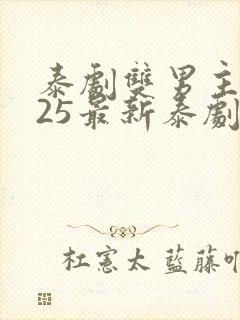 泰劇雙男主
25最新泰劇
杜憲太 藍藤